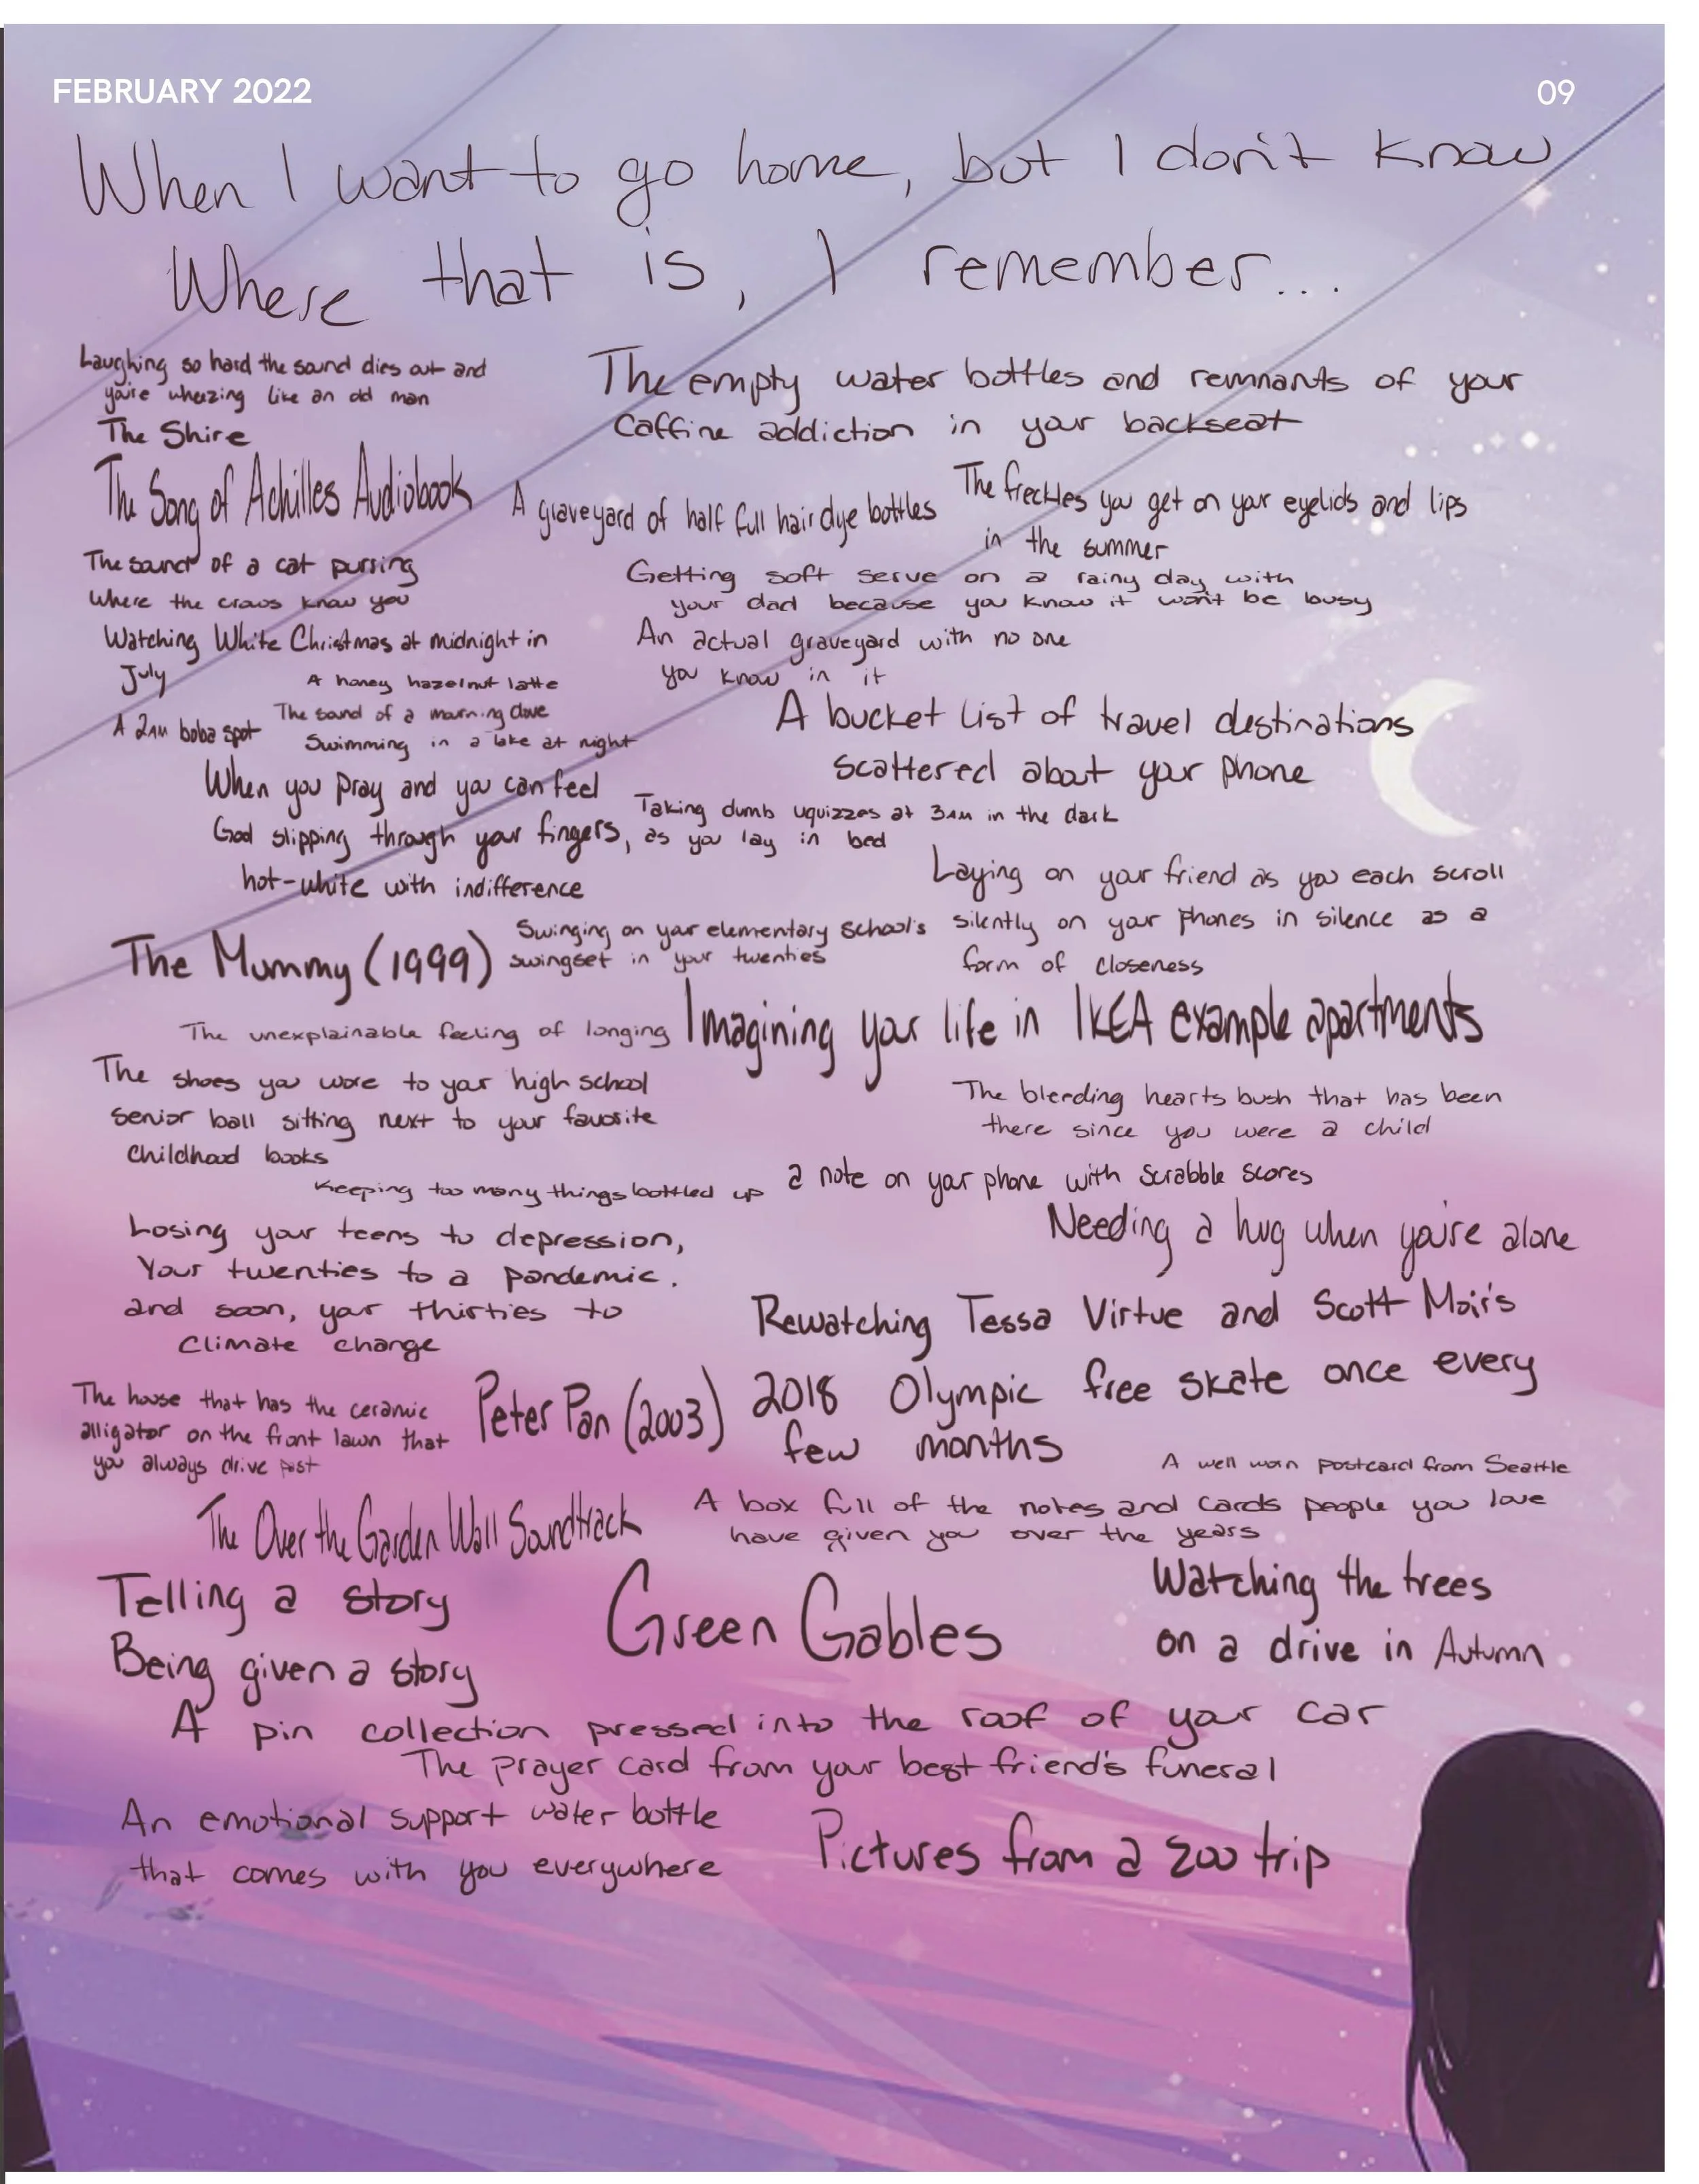 FEBRUARY 2022
09
When I want to go home, but I don't know
Where that is, I remember...
Laughing so hard the sound dies out and
you're wheezing like an old man
The Shire
The empty water bottles and remnants of your
Caffine addiction in your backseat
The Song of Achilles Audiobook
A graveyard of half full hair dye bottles
The freckles you get on your eyelids and lips
in the summer
The sound of a cat purring
Where the crows know you
Getting soft serve on a rainy day with
your dad because you know it won't be busy
Watching White Christmas at midnight in
July
An actual graveyard with no one
you know in it
A honey hazelnut latte
A 2AM boba spot
The sound of a mourning dove
Swimming in a lake at night
A bucket list of travel destinations
scattered about your phone
When you pray and you can feel
God slipping through your fingers,
hot-white with indifference
Taking dumb uquizzes at 3AM in the dark
as you lay in bed
Laying on your friend as you each scroll
silently on your phones in silence as a
form of closeness
The Mummy (1999)
Swinging on your elementary school's
swingset in your twenties
The unexplainable feeling of longing
Imagining your life in IKEA example apartments
The shoes you wore to your high school
senior ball sitting next to your favorite
childhood books
The bleeding hearts bush that has been
there since you were a child
Keeping too many things bottled up
a note on your phone with scrabble scores
Losing your teens to depression,
Your twenties to a pandemic.
and soon, your thirties to
Climate change
Needing a hug when you're alone
Rewatching Tessa Virtue and Scott Moir's
2018 Olympic free skate once every
few months
The house that has the ceramic
alligator on the front lawn that
you always drive past
Peter Pan (2003)
A well worn postcard from Seattle
The Over the Garden Wall Soundtrack
A box full of the notes and cards people you love
have given you over the years
Telling a story
Being given a story
Green Gables
Watching the trees
on a drive in Autumn
A pin collection pressed into the roof of your car
The prayer card from your best friend's funeral
An emotional support water bottle
that comes with you everywhere
Pictures from a zoo trip